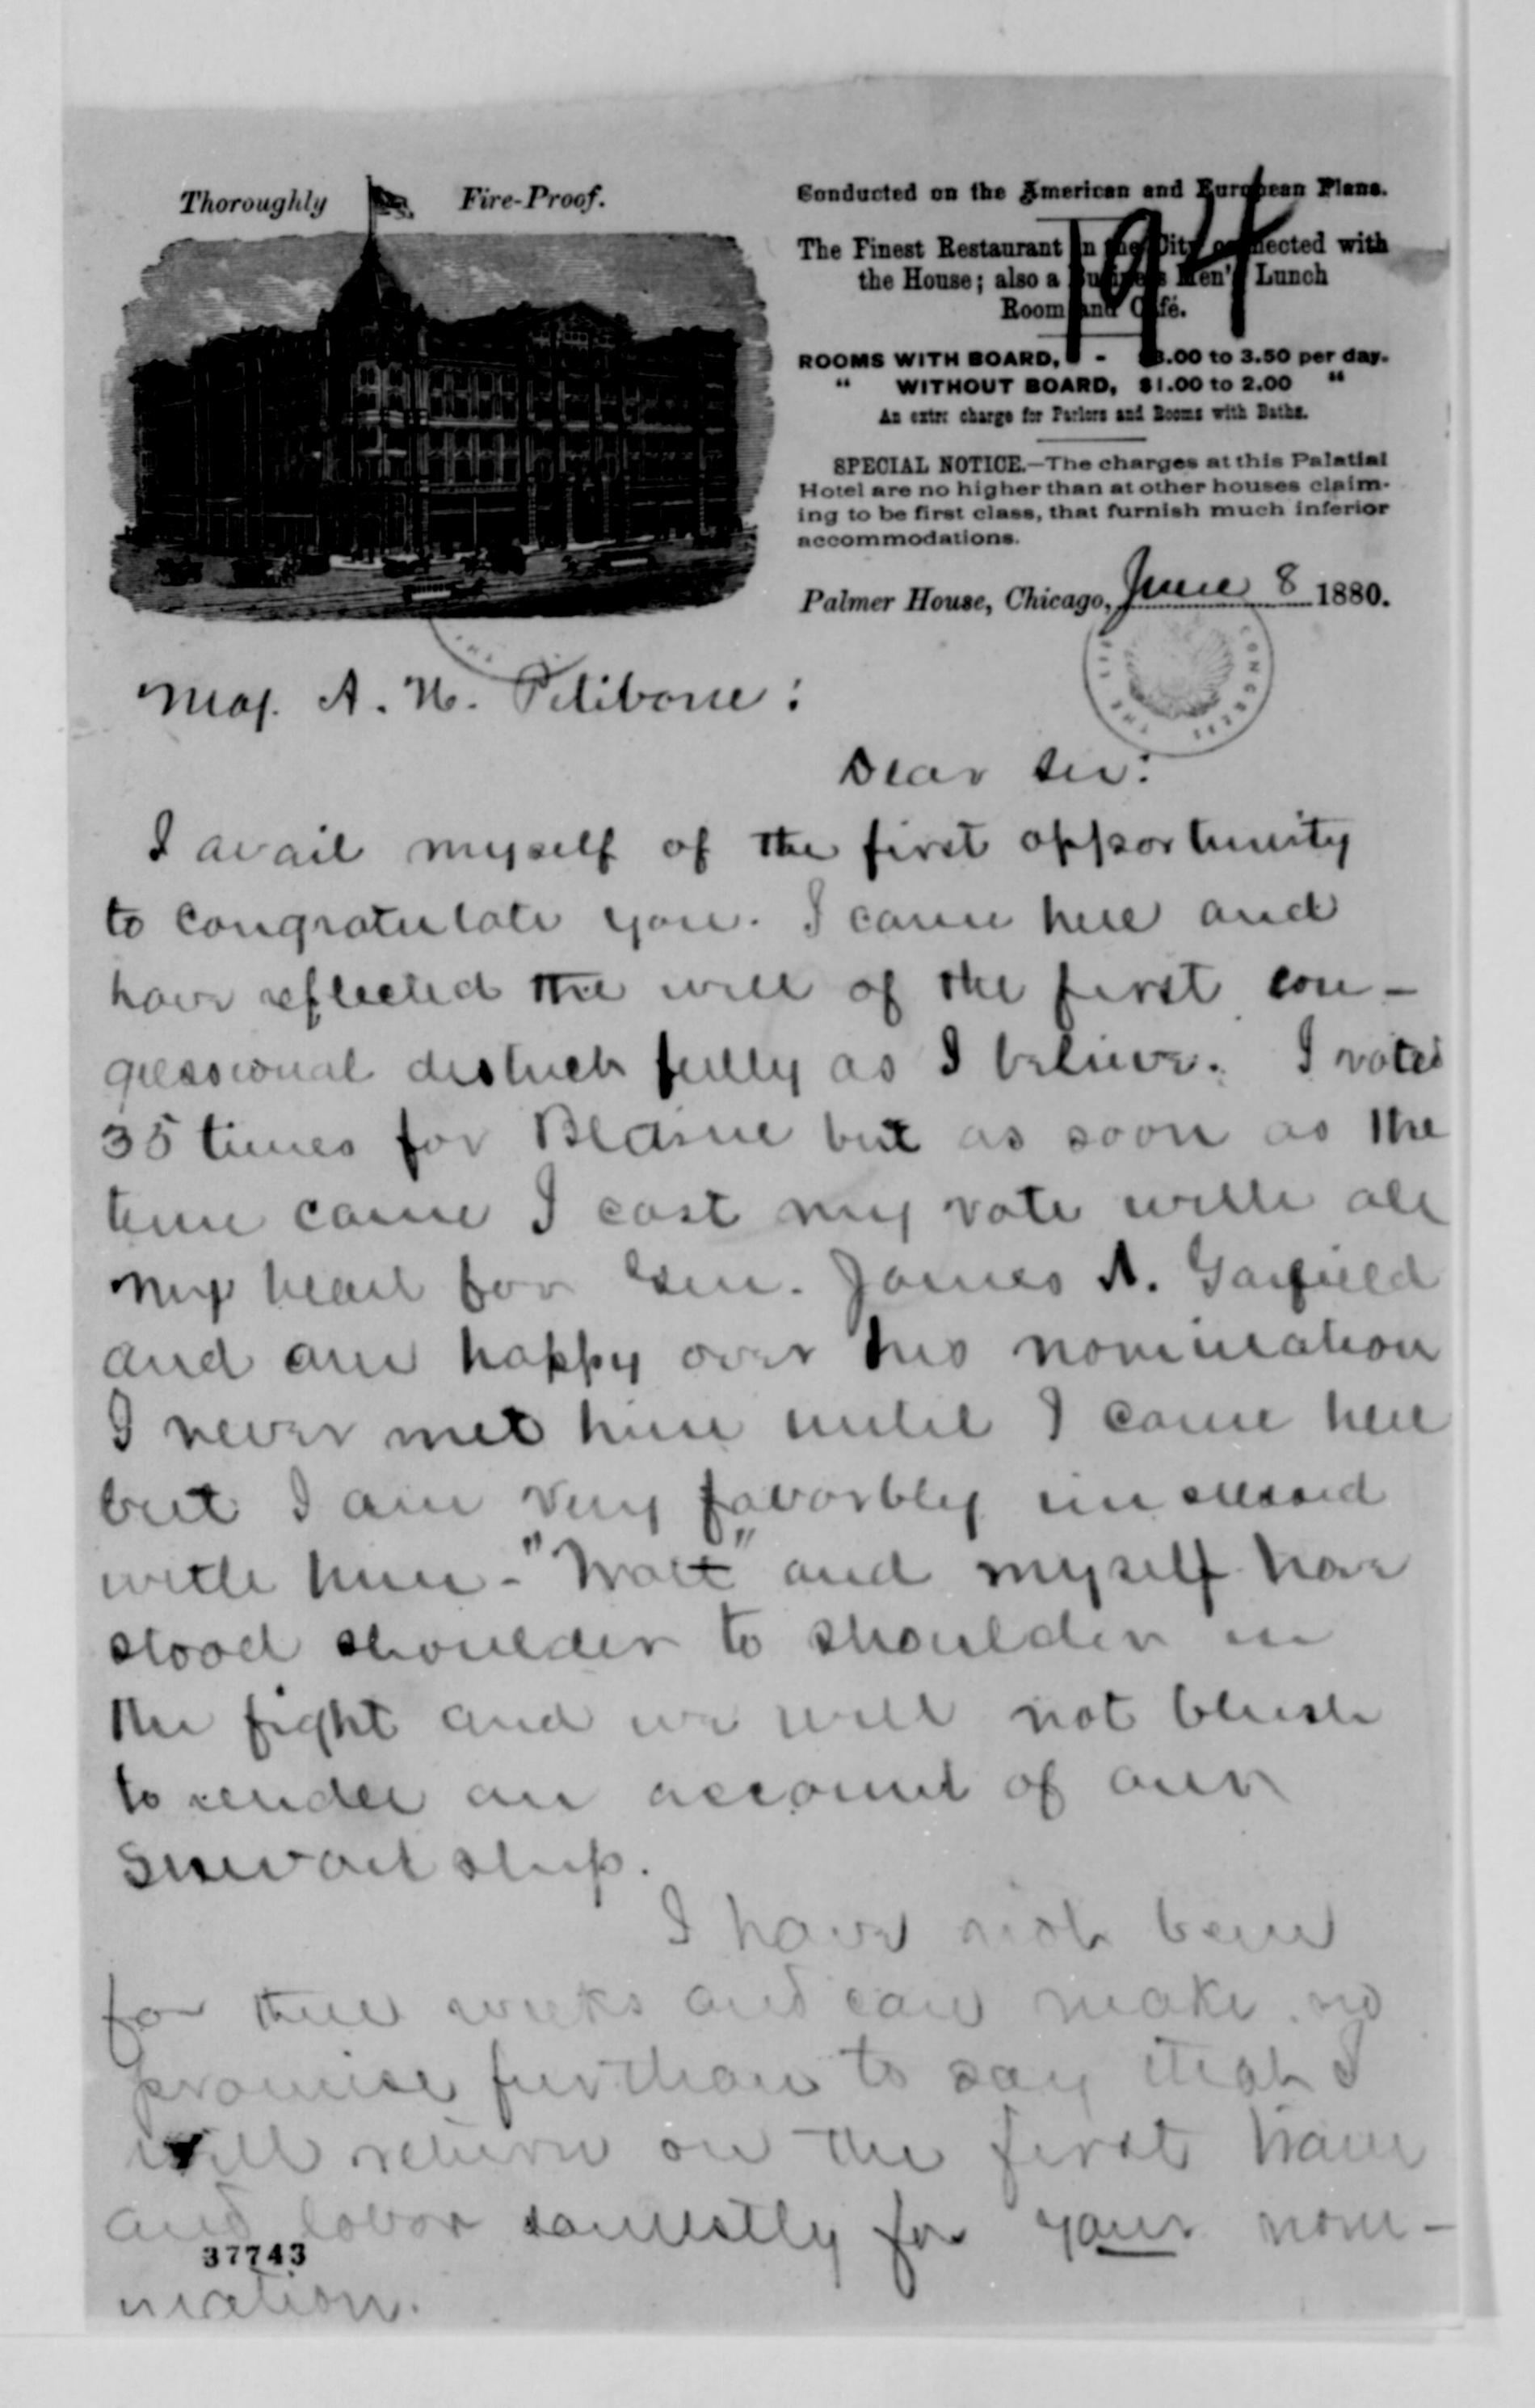 Thoroughly Fire-Proof.
Conducted on the American and European Plans.
194
The Finest Restaurant in the City connected with
the House; also a Business Men's Lunch
Room and Café.
ROOMS WITH BOARD, - $3.00 to 3.50 per day.
" WITHOUT BOARD, $1.00 to 2.00 "
An extra charge for Parlors and Rooms with Baths.
SPECIAL NOTICE.—The charges at this Palatial
Hotel are no higher than at other houses claim-
ing to be first class, that furnish much inferior
accommodations.
Palmer House, Chicago, June 8 1880.
Maj. A. H. Pettibone:
Dear Sir:
I avail myself of the first opportunity
to congratulate you. I came here and
have reflected the will of the first con-
gressional district fully as I believe. I voted
35 times for Blaine but as soon as the
time came I cast my vote with all
my heart for Gen. James A. Garfield
and am happy over his nomination
I never met him until I came here
but I am very favorbly impressed
with him - "Walt" and myself have
stood shoulder to shoulder in
the fight and we will not blush
to render an account of our
stewardship.
I have not been
for three weeks and can make no
promise further than to say that I
will return on the first train
and labor earnestly for your nom-
ination.
37743